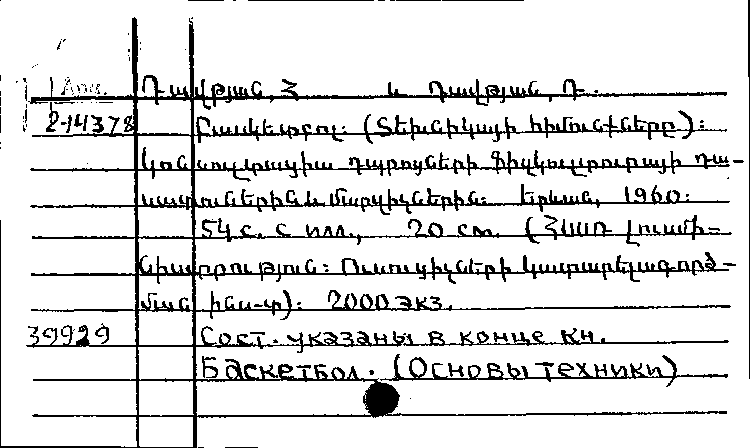 Арм. Դավթյան, Հ և Դավթյան, Դ.
2-14378 Բասկետբոլ: (Տեխնիկայի հիմունքները):
Կոնսուլտացիա դպրոցների ֆիզկուլտուրայի դա-
սատուներին և մարզիչներին: Երևան, 1960:
54 с. с илл., 20 см. (ՀՍՍՌ Լուսավո-
նիստրություն: Ուսուցիչների կատարելագործ-
ման ինս-տ): 2000 экз.
39929 Сост. указаны в конце кн.
Баскетбол. (Основы техники)